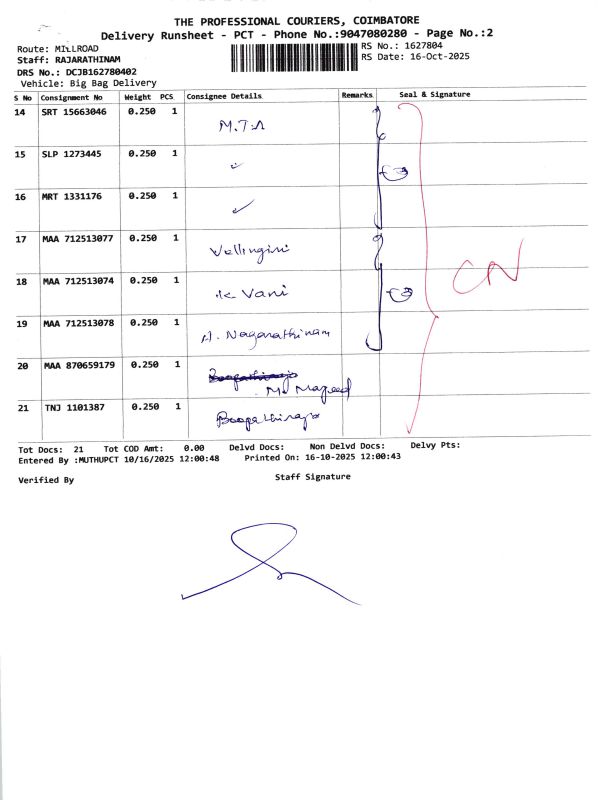 THE PROFESSIONAL COURIERS, COIMBATORE
Delivery Runsheet - PCT - Phone No.:9047080280 - Page No.:2
Route: MILLROAD
RS No.: 1627804
Staff: RAJARATHINAM
RS Date: 16-Oct-2025
DRS No.: DCJB162780402
Vehicle: Big Bag Delivery
S No Consignment No Weight PCS Consignee Details Remarks Seal & Signature
14 SRT 15663046 0.250 1 M.T.A
15 SLP 1273445 0.250 1 ✓
16 MRT 1331176 0.250 1 ✓
17 MAA 712513077 0.250 1 Vellingiri
18 MAA 712513074 0.250 1 K. Vani
19 MAA 712513078 0.250 1 A. Nagarathinam
20 MAA 870659179 0.250 1 Boopathiraja M. Majeed
21 TNJ 1101387 0.250 1 Boopathiraja
CN
Tot Docs: 21 Tot COD Amt: 0.00 Delvd Docs: Non Delvd Docs: Delvy Pts:
Entered By :MUTHUPCT 10/16/2025 12:00:48 Printed On: 16-10-2025 12:00:43
Verified By Staff Signature